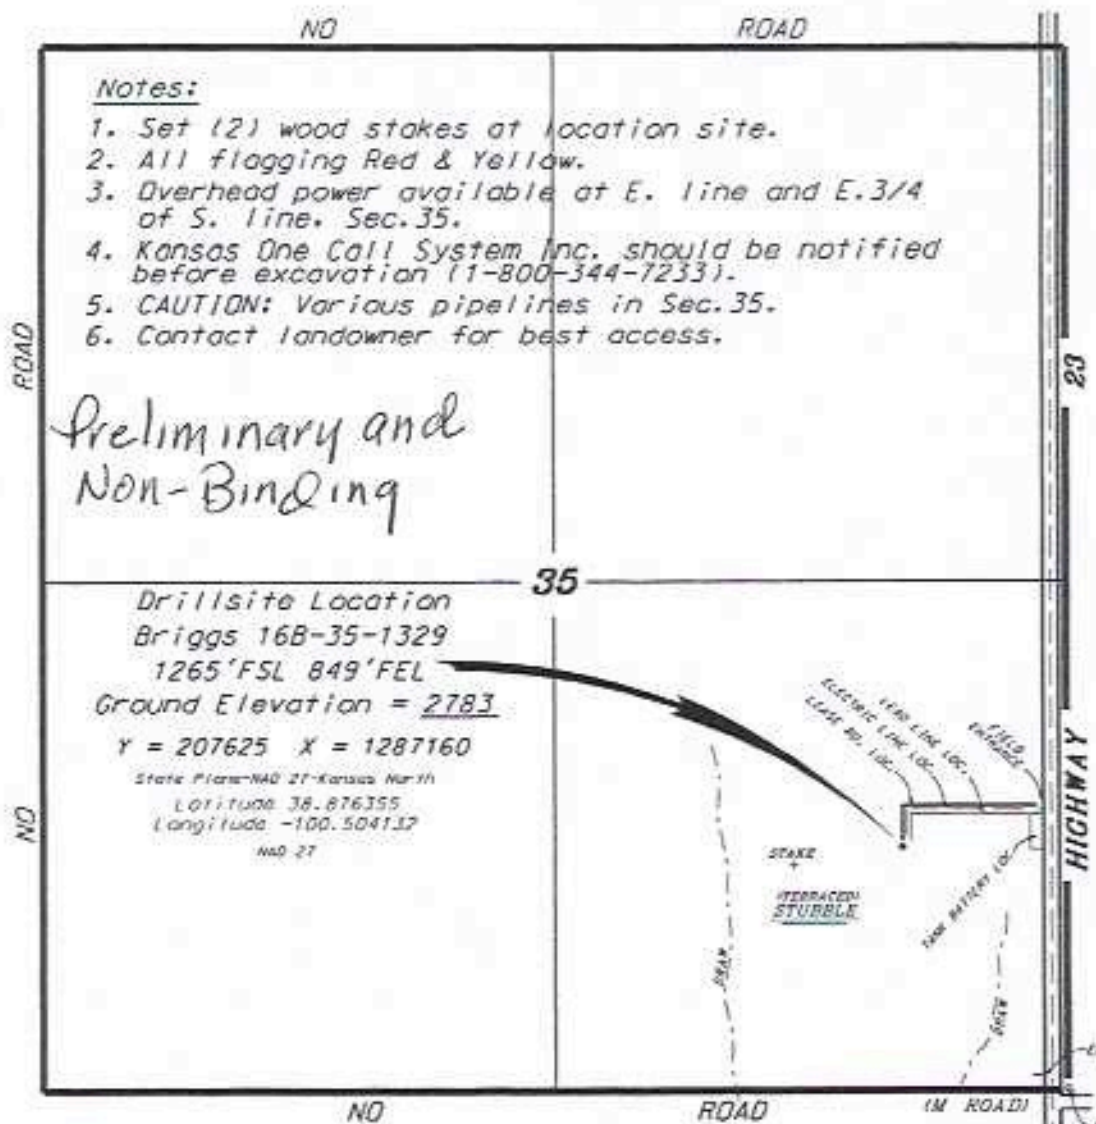 NO ROAD
Notes:
1. Set (2) wood stakes at location site.
2. All flagging Red & Yellow.
3. Overhead power available at E. line and E.3/4
of S. line. Sec.35.
4. Kansas One Call System Inc. should be notified
before excavation (1-800-344-7233).
5. CAUTION: Various pipelines in Sec.35.
6. Contact landowner for best access.
ROAD
23
Preliminary and
Non-Binding
35
Drillsite Location
Briggs 16B-35-1329
1265'FSL 849'FEL
Ground Elevation = 2783
Y = 207625 X = 1287160
State Plane-NAD 27-Kansas North
Latitude 38.876355
Longitude -100.504132
NAD 27
NO
LEASE RD. LOC.
ELECTRIC LINE LOC.
LEAD LINE LOC.
FIELD
ENTRANCE
HIGHWAY
STAKE
(TERRACED)
STUBBLE
TANK BATTERY LOC.
DRAW
DRAW
NO ROAD (M ROAD)